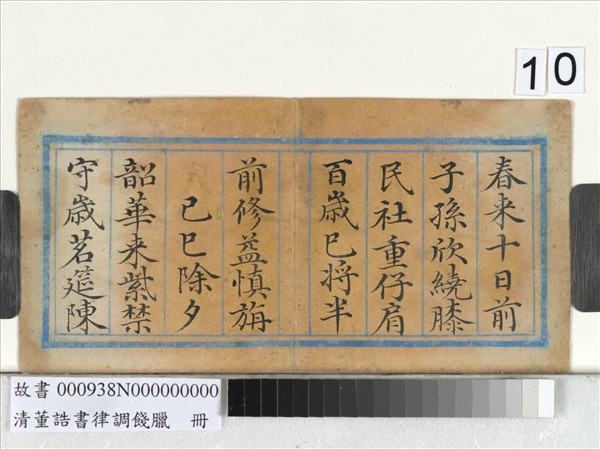 10
春来十日前
子孫欣繞膝
民社重仔肩
百歳已将半
前修益慎旃
己巳除夕
韶華来紫禁
守歳茗筵陳
故書 000938N000000000
清董誥書律調餞臘 冊